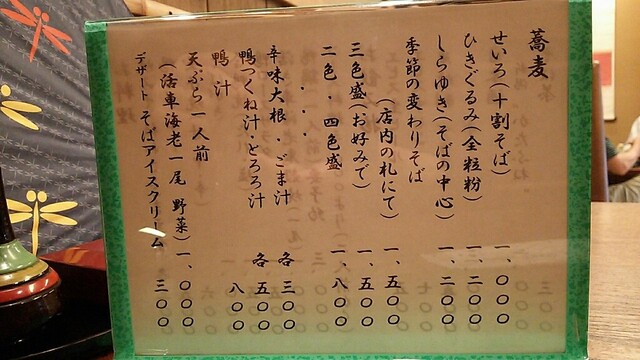 蕎麦
せいろ(十割そば) 一、〇〇〇
ひきぐるみ(全粒粉) 一、二〇〇
しらゆき(そばの中心) 一、二〇〇
季節の変わりそば
(店内の札にて) 一、五〇〇
三色盛(お好みで) 一、五〇〇
二色・・四色盛 一、八〇〇
・・・
辛味大根・ごま汁 各三〇〇
鴨つくね汁・とろろ汁 各五〇〇
鴨汁 八〇〇
天ぷら一人前
(活車海老一尾 野菜) 一、〇〇〇
デザート そばアイスクリーム 三〇〇